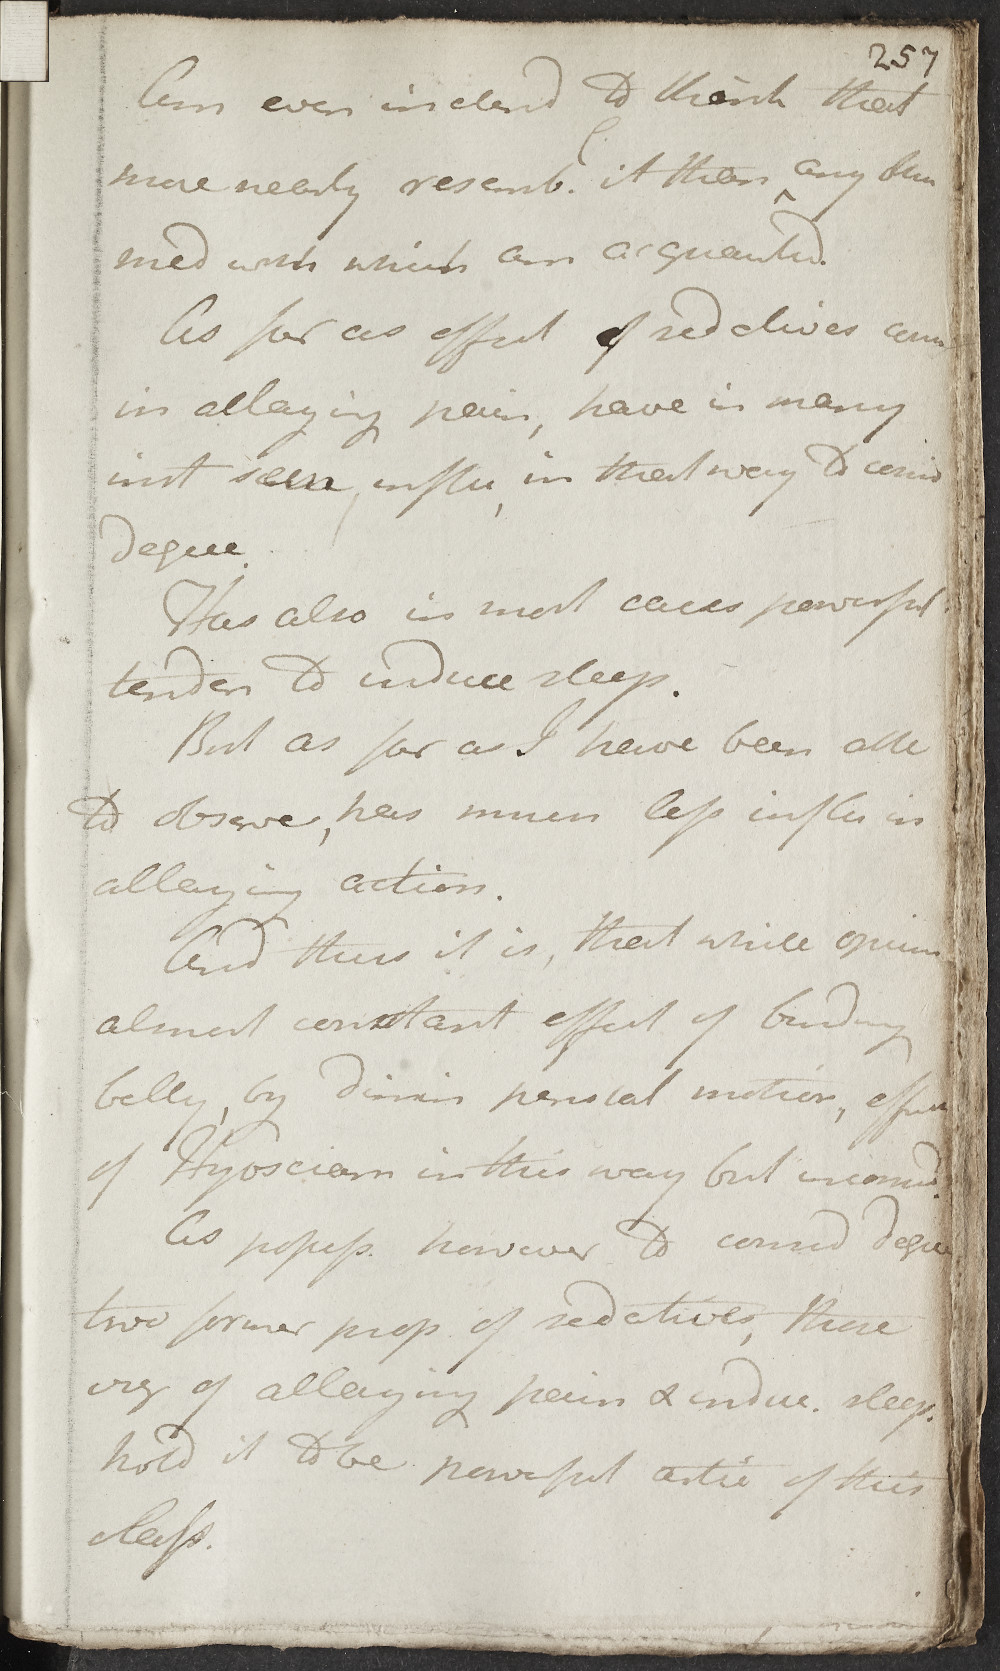 257
Am even inclend to think that
more nearly resemb. it than any
med with which am acquainted.
As far as effect of sedatives
in allaying pain, have in many
inst seen influ, in that way to consid
degree.
Has also in most cases powerful
tenden to induce sleep.
But as far as I have been able
to observe, has much less influ in
allaying action.
And thus it is, that while opium
almost constant effect of binding
belly, by dimin peristal motion, effect
of Hyosciam in this way but inconsid.
As possess. however to consid degree
two former prop. of sedatives, those
viz of allaying pain & indu. sleep.
hold it to be powerful artic of this
class.